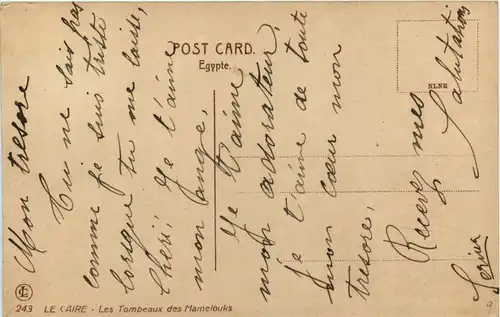 POST CARD.
Egypte.
NLNE
Mon tresore
Tu ne sais pas
comme je suis triste
lorsque tu me laisse,
Cheri, Je t'aime
mon ange,
Je t'aime
mon adorateur,
Je t'aime de toute
mon cœur mon
tresore,
Recevez mes
Salutations
243 LE CAIRE - Les Tombeaux des Mamelouks
9